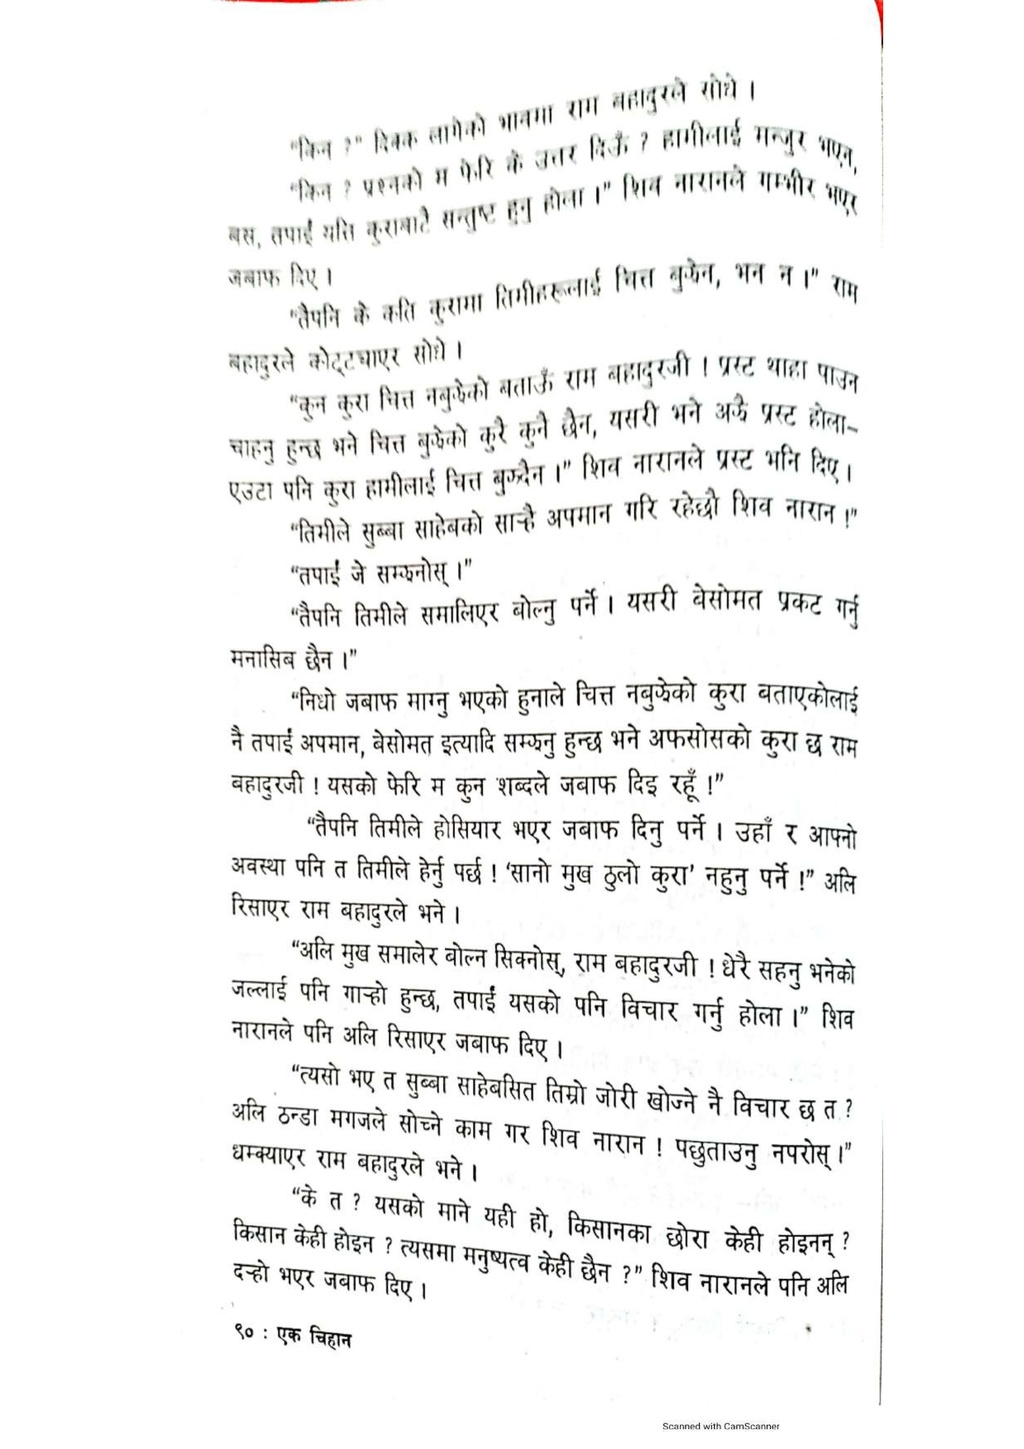 “किन ?” दिक्क लागेको भावमा राम बहादुरले सोधे ।
“किन ? प्रश्नको म फेरि के उत्तर दिऊँ ? हामीलाई मन्जुर भएन,
बस, तपाईं यत्ति कुराबाटै सन्तुष्ट हुनु होला ।” शिव नारानले गम्भीर भएर
जबाफ दिए ।
“तैपनि के कति कुरामा तिमीहरूलाई चित्त बुझेन, भन न ।” राम
बहादुरले कोट्ट्याएर सोधे ।
“कुन कुरा चित्त नबुझेको बताऊँ राम बहादुरजी ! प्रस्ट थाहा पाउन
चाहनु हुन्छ भने चित्त बुझेको कुरै कुनै छैन, यसरी भने अझै प्रस्ट होला–
एउटा पनि कुरा हामीलाई चित्त बुझ्दैन ।” शिव नारानले प्रस्ट भनि दिए ।
“तिमीले सुब्बा साहेबको साऱ्है अपमान गरि रहेछौ शिव नारान !”
“तपाईं जे सम्झनोस् ।”
“तैपनि तिमीले समालिएर बोल्नु पर्ने । यसरी बेसोमत प्रकट गर्नु
मनासिब छैन ।”
“निधो जबाफ माग्नु भएको हुनाले चित्त नबुझेको कुरा बताएकोलाई
नै तपाईं अपमान, बेसोमत इत्यादि सम्झनु हुन्छ भने अफसोसको कुरा छ राम
बहादुरजी ! यसको फेरि म कुन शब्दले जबाफ दिइ रहूँ !”
“तैपनि तिमीले होसियार भएर जबाफ दिनु पर्ने । उहाँ र आफ्नो
अवस्था पनि त तिमीले हेर्नु पर्छ ! ‘सानो मुख ठुलो कुरा’ नहुनु पर्ने !” अलि
रिसाएर राम बहादुरले भने ।
“अलि मुख समालेर बोल्न सिक्नोस्, राम बहादुरजी ! धेरै सहनु भनेको
जल्लाई पनि गाऱ्हो हुन्छ, तपाईं यसको पनि विचार गर्नु होला ।” शिव
नारानले पनि अलि रिसाएर जबाफ दिए ।
“त्यसो भए त सुब्बा साहेबसित तिम्रो जोरी खोज्ने नै विचार छ त ?
अलि ठन्डा मगजले सोच्ने काम गर शिव नारान ! पछुताउनु नपरोस् ।”
धम्क्याएर राम बहादुरले भने ।
“के त ? यसको माने यही हो, किसानका छोरा केही होइनन् ?
किसान केही होइन ? त्यसमा मनुष्यत्व केही छैन ?” शिव नारानले पनि अलि
दऱ्हो भएर जबाफ दिए ।
९० : एक चिहान
Scanned with CamScanner